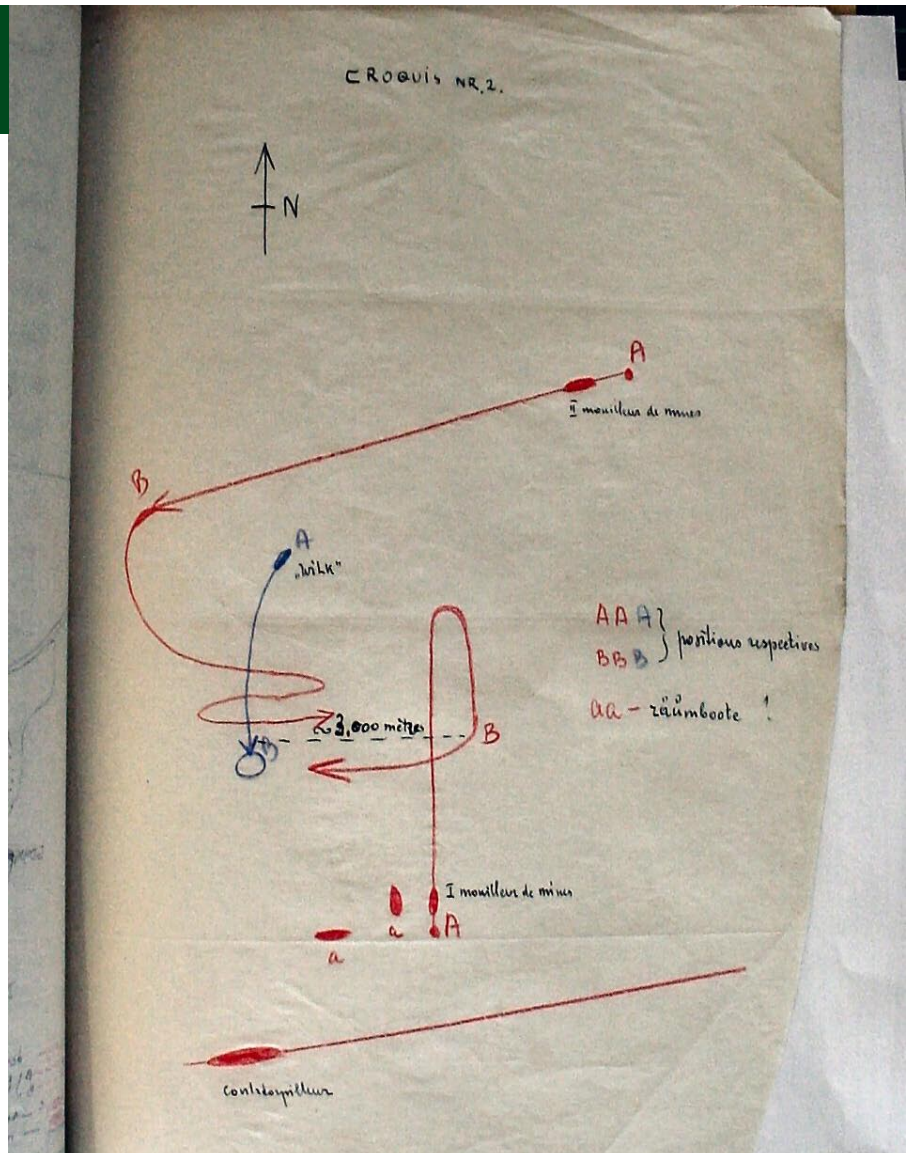 CROQUIS NR.2.
N
A
II mouilleur de mines
B
A
"WILK"
AAA } positions respectives
BBB
aa - räumboote !
~3,000 mètres
B
B
I mouilleur de mines
a
A
a
Contretorpilleur